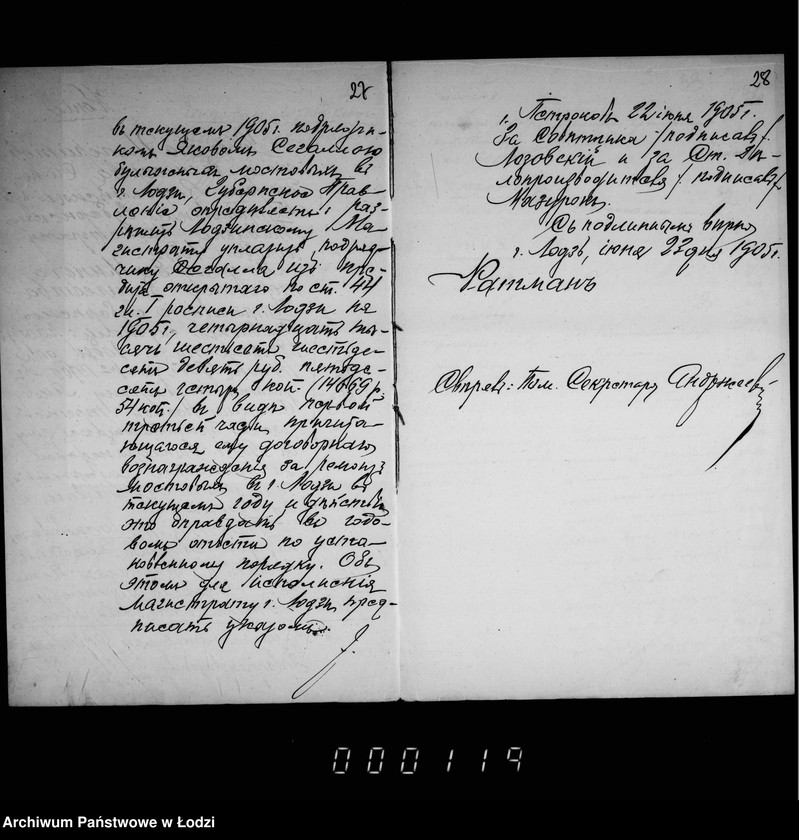 27
въ текущемъ 1905 г. подрядчи-
комъ Яковомъ Сегаломъ
булыжныхъ мостовыхъ въ
г. Лодзи, Губернское Прав-
леніе опредѣляетъ: раз-
рѣшить Лодзинскому Ма-
гистрату уплатить подряд-
чику Сегалла изъ кре-
дита открытаго по ст. 44
гл. I росписи г. Лодзи на
1905 г. четырнадцать ты-
сячъ шестьсотъ шестьде-
сятъ девять руб. пятьде-
сятъ четыре коп. (14669 р.
54 коп.) въ видѣ первой
третьей части причита-
ющагося ему договорнаго
вознагражденія за ремонтъ
мостовыхъ въ г. Лодзи въ
текущемъ году и дѣйствіе
это оправдать въ годо-
вомъ отчетѣ по уста-
новленному порядку. Объ
этомъ для исполненія
магистрату г. Лодзи пред-
писать указомъ.
28
г. Петроковъ 22 іюня 1905 г.
За Совѣтника /подписалъ/
Лозовскій и за Ст. Дѣ-
лопроизводителя /подписалъ/
Мазуронъ.
Съ подлиннымъ вѣрно
г. Лодзь, іюня 23 дня 1905 г.
Ратманъ
Свѣрялъ: Пом. Секретаря Андржеев
000119
Archiwum Państwowe w Łodzi